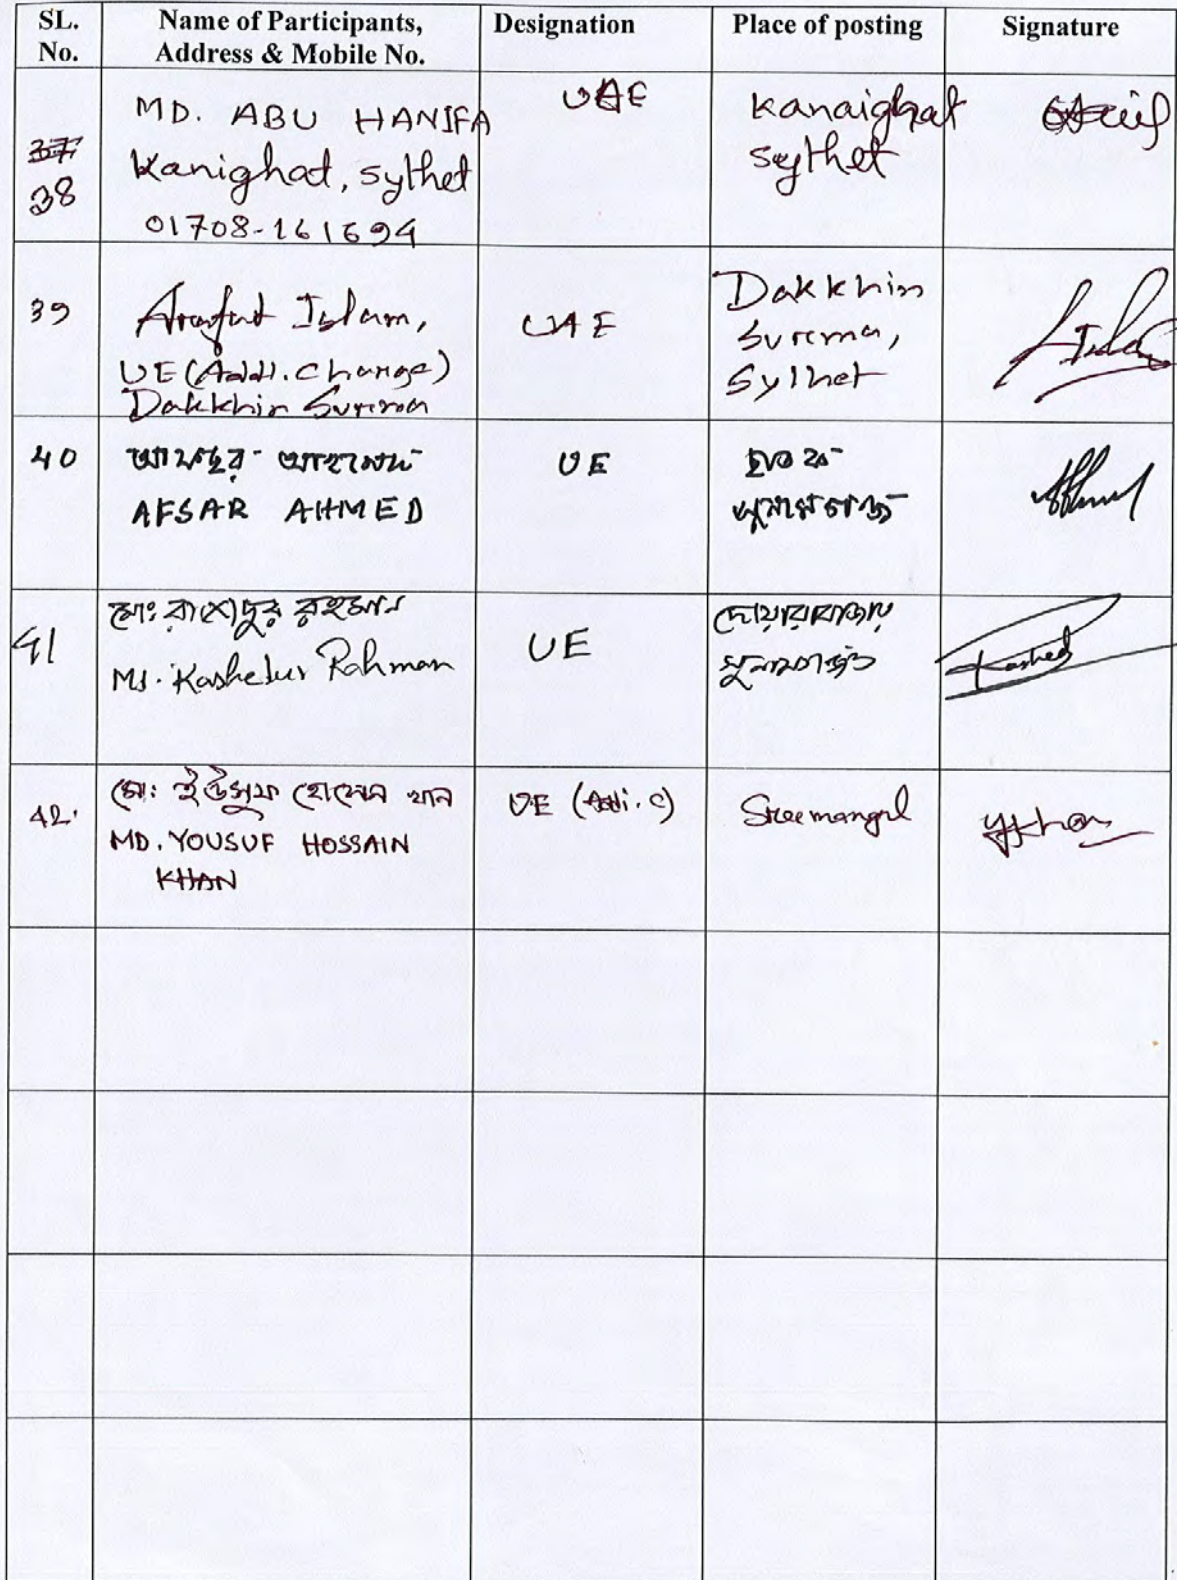 SL. No.
Name of Participants, Address & Mobile No.
Designation
Place of posting
Signature
37
38
MD. ABU HANIFA
Kanighat, sylhet
01708-161694
UAE
Kanaighat
Sylhet
39
Arafat Islam,
UE (Addl. Charge)
Dakkhin Surma
UAE
Dakkhin
Surma,
Sylhet
40
আফছর আহমেদ
AFSAR AHMED
UE
ছাতক
সুনামগঞ্জ
41
মোঃ রাশেদুর রহমান
Md. Rashedur Rahman
UE
দোয়ারাবাজার
সুনামগঞ্জ
Rashed
42.
মো: ইউসুফ হোসেন খান
MD. YOUSUF HOSSAIN
KHAN
UE (Addi. C)
Sreemangal